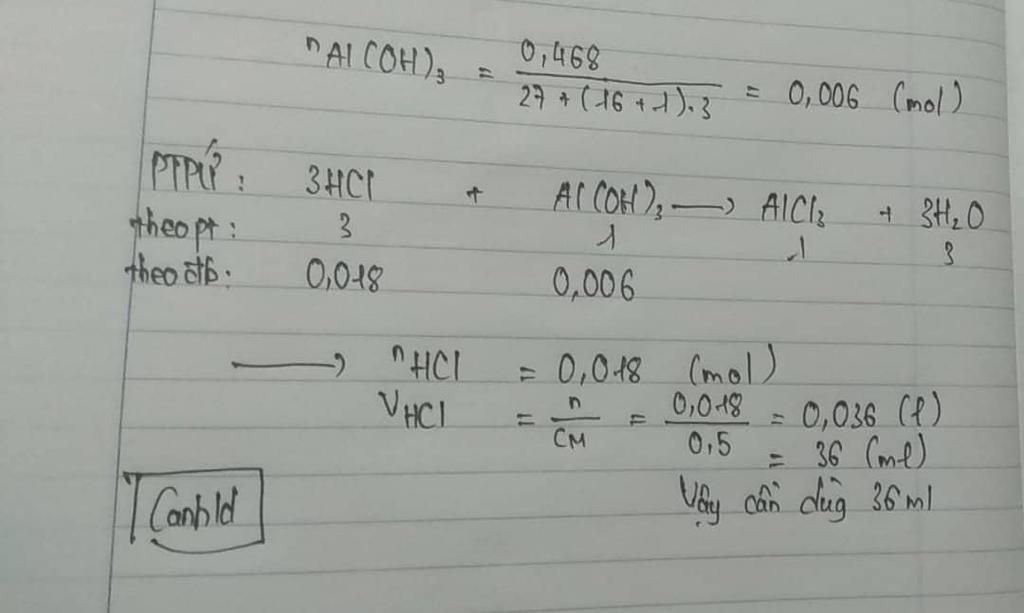 nAl(OH)₃ = 0,468 / 27 + (16 + 1).3 = 0,006 (mol)
PTPƯ: 3HCl + Al(OH)₃ → AlCl₃ + 3H₂O
theo pt: 3 1 1 3
theo đb: 0,018 0,006
→ nHCl = 0,018 (mol)
VHCl = n / CM = 0,018 / 0,5 = 0,036 (l)
= 36 (ml)
Vậy cần dùg 36 ml
Canhld